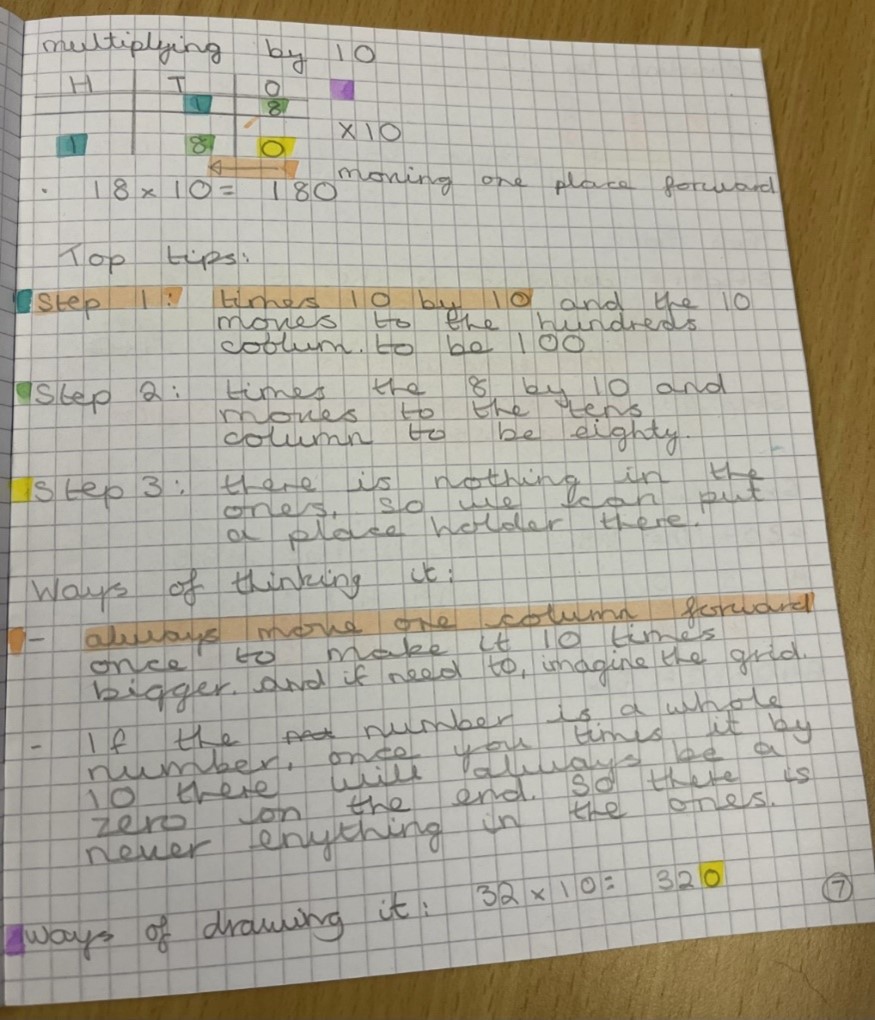 multiplying by 10
H T O
1 8
1 8 0 x10
moning one place forward
. 18 x 10 = 180
Top tips:
Step 1: times 10 by 10 and the 10
moves to the hundreds
coblum. to be 100
Step 2: times the 8 by 10 and
moves to the tens
column to be eighty.
Step 3: there is nothing in the
ones, so we can put
a place holder there.
Ways of thinking it:
- always move one column forward
once to make it 10 times
bigger. and if need to, imagine the grid.
- If the number is a whole
number, once you times it by
10 there will always be a
zero on the end. so there is
never enything in the ones.
ways of drawing it: 32 x 10 = 320
7